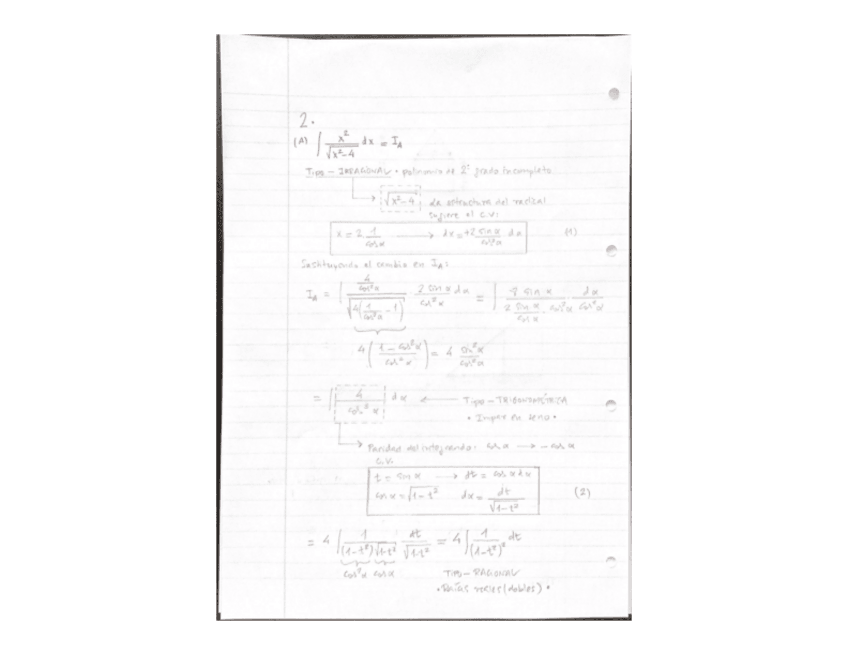 2.
(A) ∫ x²/√(x²-4) dx = I_A
Tipo - IRRACIONAL • polinomio de 2º grado incompleto
√(x²-4) La estructura del radical
sugiere el C.V:
x = 2 1/cos α → dx = +2 sin α/cos² α dα (1)
Sustituyendo el cambio en I_A:
I_A = ∫ (4/cos² α)/√(4(1/cos² α - 1)) 2 sin α dα/cos² α = ∫ 8 sin α/(2 sin α/cos α · cos² α) · dα/cos² α
4 ((1 - cos² α)/cos² α) = 4 sin² α/cos² α
= ∫ 4/cos³ α dα ← Tipo - TRIGONOMÉTRICA
• Impar en seno •
Paridad del integrando: cos α → - cos α
C.V.
t = sin α → dt = cos α dα
cos α = √(1-t²) dα = dt/√(1-t²) (2)
= 4 ∫ 1/((1-t²)√(1-t²)) dt/√(1-t²) = 4 ∫ 1/(1-t²)² dt
cos² α cos α Tipo - RACIONAL
• Raíces reales (dobles) •